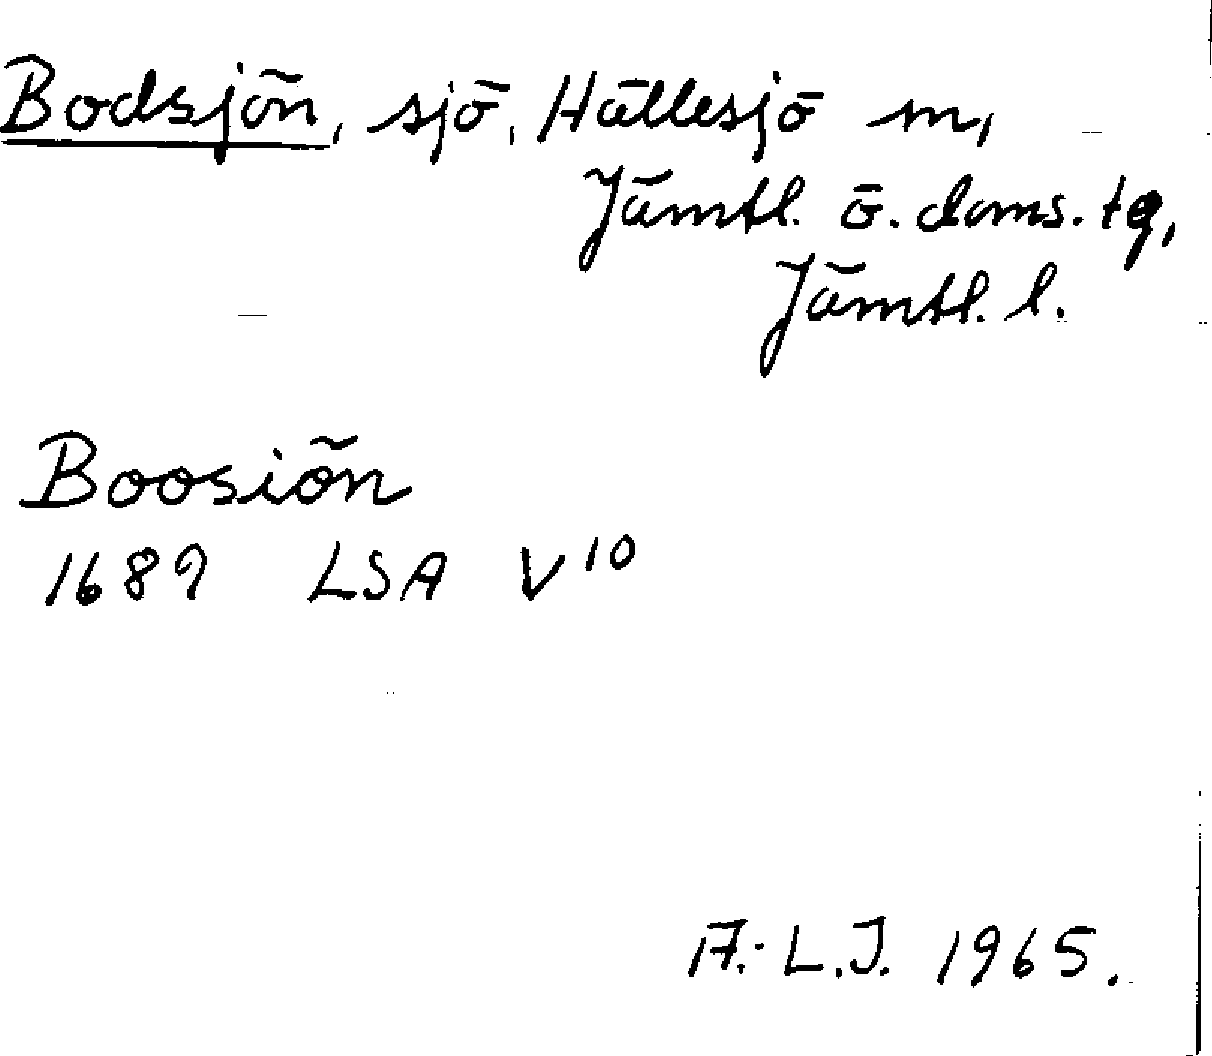 Bodsjön, sjö, Hällesjö m,
Jämtl. ö. doms. tg,
Jämtl. l.
Boosiön
1689 LSA V¹⁰
A.-L.J. 1965.